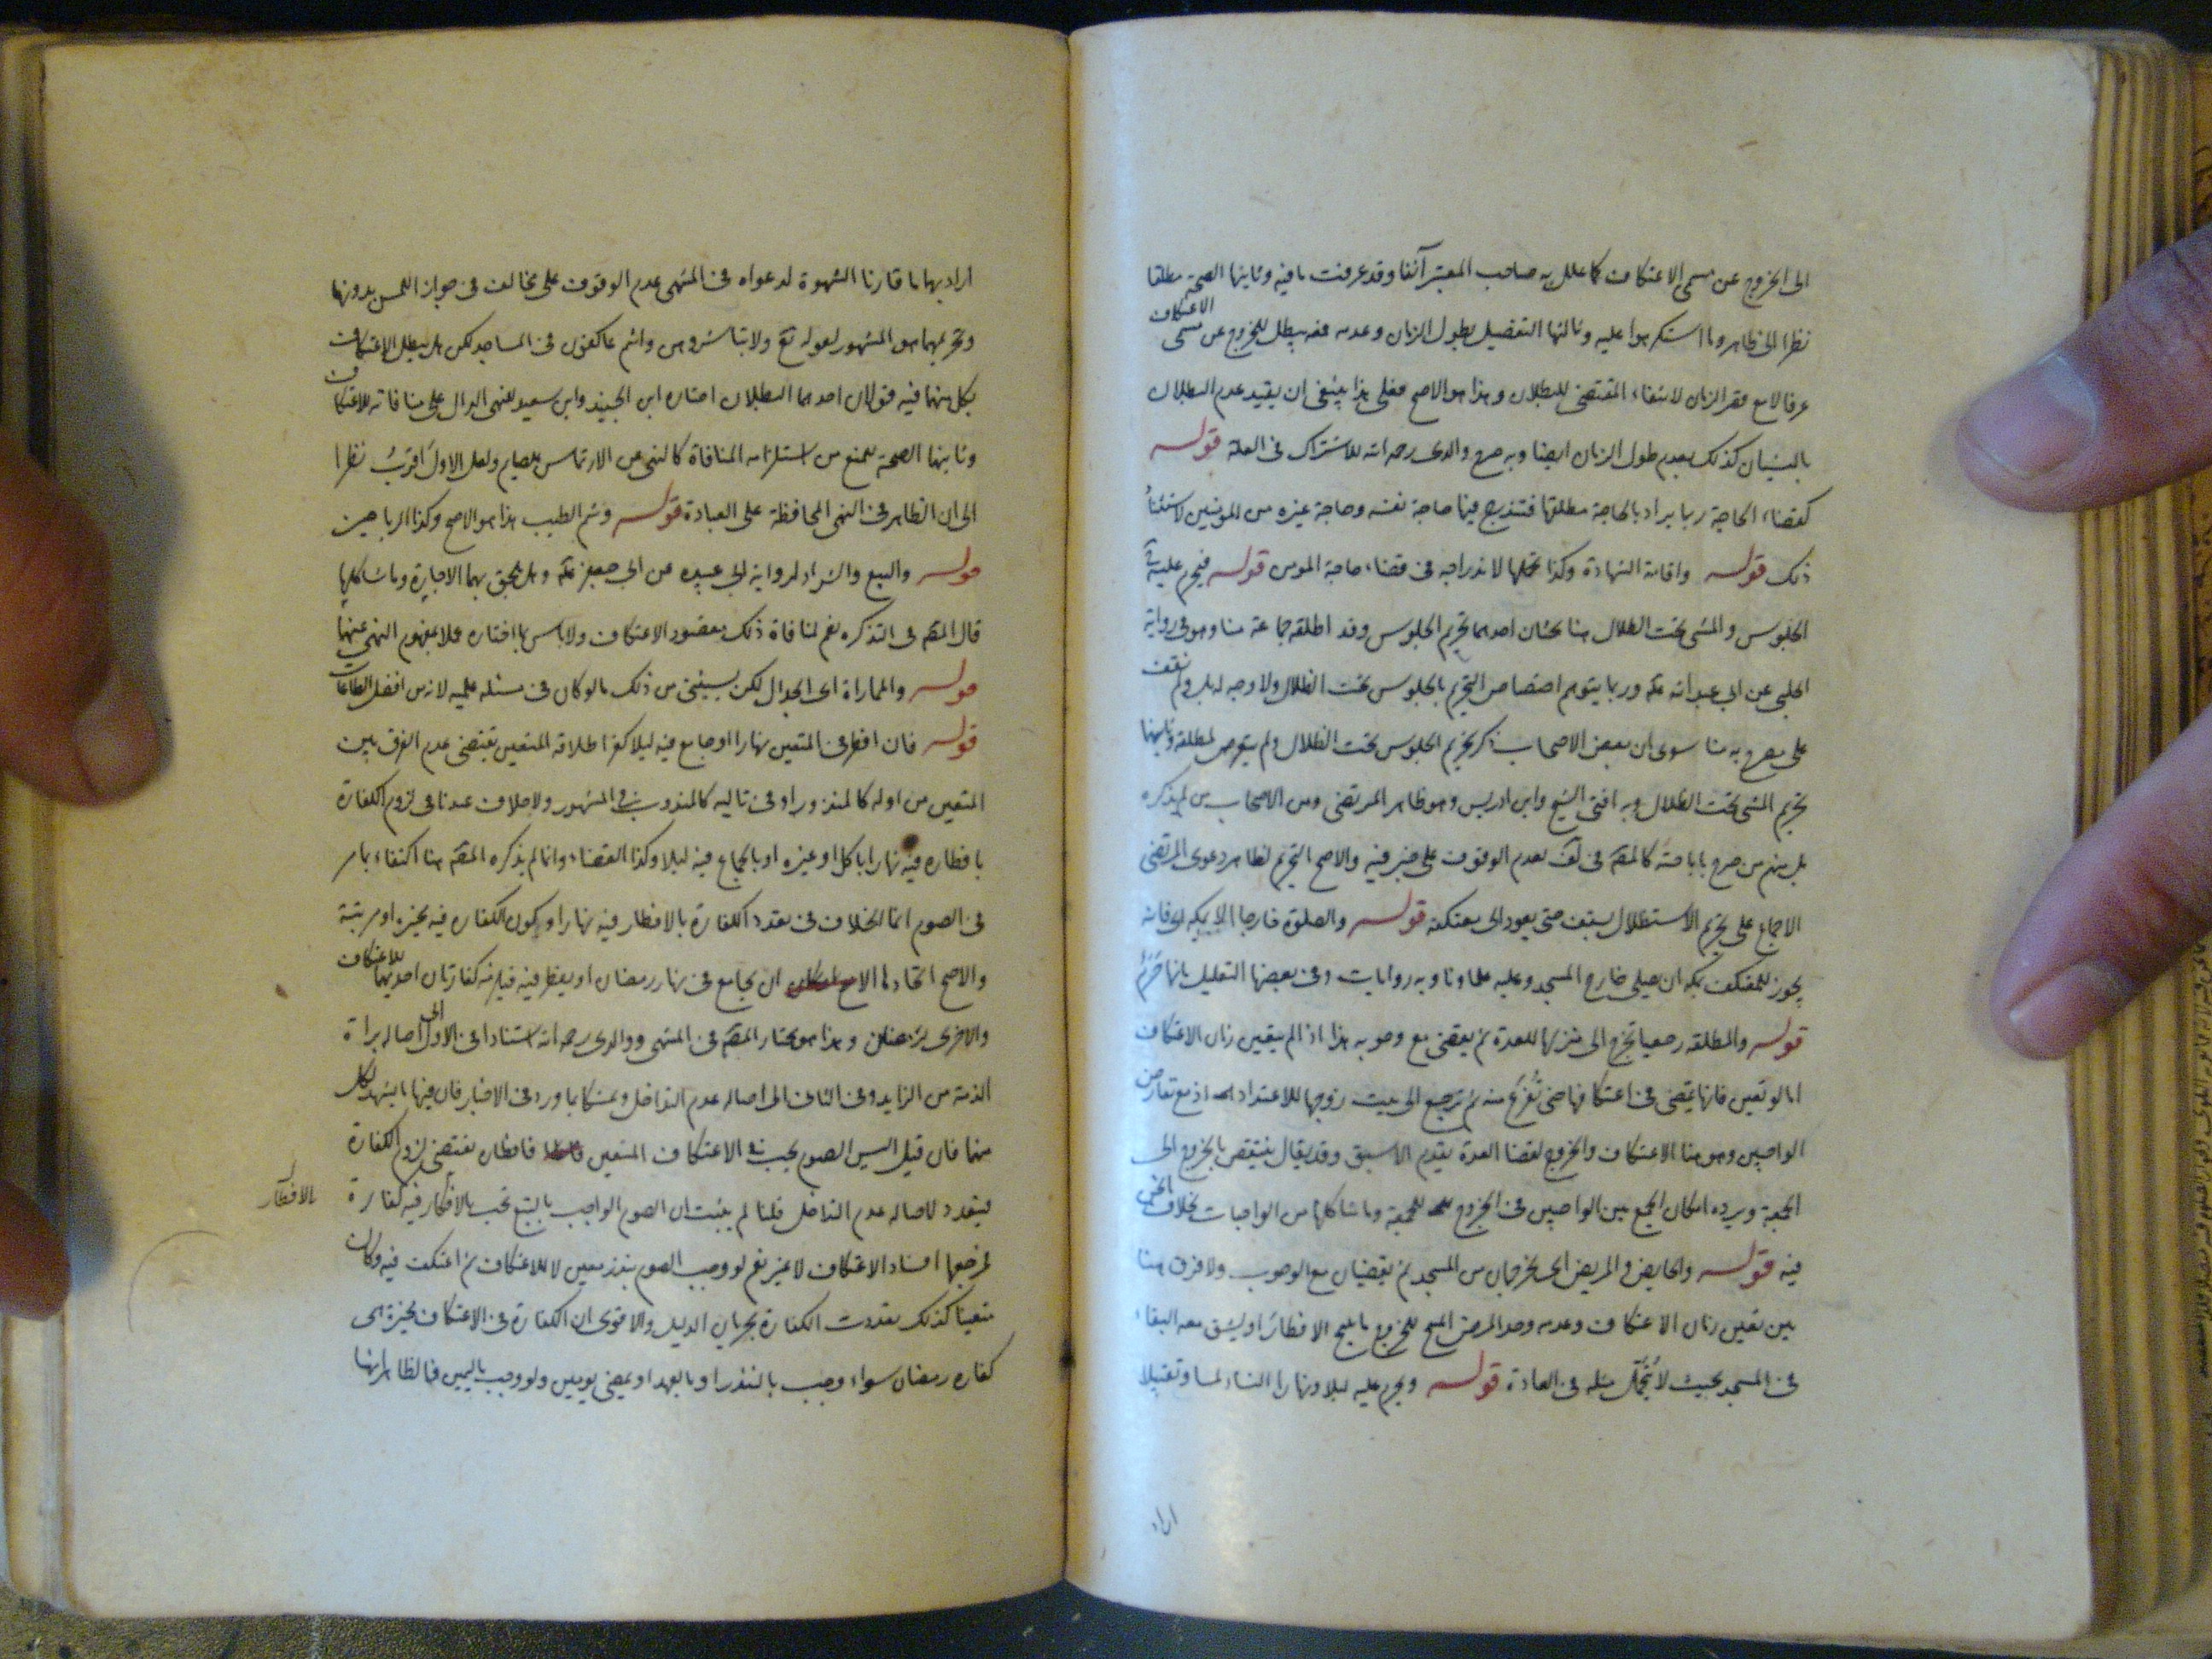 الى الخروج عن مسمى الاعتكاف كما علل به صاحب المعتبر آنفا وقد عرفت ما فيه وثانيها الصحة مطلقا
نظرا الى ظاهر وما استكرهوا عليه وثالثها التفصيل بطول الزمان وعدمه فمعه يبطل للخروج عن مسمى الاعتكاف
عرفا لا مع قصر الزمان لانتفاء المقتضى للبطلان وهذا هو الاصح فعلى هذا ينبغى ان يقيد عدم البطلان
بالنسيان كذلك بعدم طول الزمان ايضا وبه صرح والدى رحمه الله للاشتراك فى العلة قوله
كقضاء الحاجة ربما يراد بالحاجة مطلقها فتندرج فيها حاجة نفسه وحاجة غيره من المؤمنين
ذلك قوله واقامة الشهادة وكذا تحملها لاندراجه فى قضاء حاجة المؤمن قوله فيحرم عليه
الجلوس والمشى تحت الظلال هنا بحثان احدهما تحريم الجلوس وقد اطلقه جماعة منا وهو فى رواية
الحلبى عن ابى عبد الله عليه وربما يتوهم اختصاص التحريم بالجلوس تحت الظلال ولا وجه له بل ولم نقف
على مصرح به منا سوى ان بعض الاصحاب ذكر تحريم الجلوس تحت الظلال ولم يتعرض لمطلقه وثانيهما
تحريم المشى تحت الظلال وبه افتى الشيخ وابن ادريس وهو ظاهر المرتضى ومن الاصحاب من لم يذكره
بل منهم من صرح باباحته كالمصنف فى لعدم الوقوف على خبر فيه والاصح التحريم لظاهر دعوى المرتضى
الاجماع على تحريم الاستظلال بسقف حتى يعود الى معتكفه قوله والصلوة خارجا الا بمكه اى فانه
يجوز للمعتكف بمكه ان يصلى خارج المسجد وعليه علماؤنا وبه روايات وفى بعضها التعليل بانها حرم
قوله والمطلقه رجعيا تخرج الى منزلها للعدة ثم يقضى مع وجوبه هذا اذا لم يتعين زمان الاعتكاف
اما لو تعين فانها تمضى فى اعتكافها حتى تفرغ منه ثم ترجع الى بيت زوجها للاعتداد اذ مع تعارض
الواجبين وهو هنا الاعتكاف والخروج لقضا العدة يقدم الاسبق وقد يقال ينتقض بالخروج الى
الجمعة ويرده امكان الجمع بين الواجبين فى الخروج للجمعة وما شاكلها من الواجبات بخلاف ما نحن
فيه قوله والحايض والمريض اى يخرجان من المسجد ثم يقضيان مع الوجوب ولا فرق هنا
بين تعين زمان الاعتكاف وعدمه وحد المرض المبيح للخروج ما يبيح الافطار او يشق معه البقاء
فى المسجد بحيث لا يتحمل مثله فى العادة قوله ويحرم عليه ليلا ونهارا النساء لمسا وتقبيلا
اراد
اراد بهما ما قارنا الشهوة لدعواه فى المنتهى عدم الوقوف على مخالف فى جواز اللمس بدونها
وتحريمهما هو المشهور لقوله تع ولا تباشروهن وانتم عاكفون فى المساجد لكن هل يبطل الاعتكاف
بكل منهما فيه قولان احدهما البطلان اختاره ابن الجنيد وابن سعيد للنهى الدال على منافاته للاعتكاف
وثانيهما الصحة للمنع من استلزامه المنافاة كالنهى عن الارتماس للصايم ولعل الاول اقرب نظرا
الى ان الظاهر فى النهى المحافظة على العبادة قوله وشم الطيب هذا هو الاصح وكذا الرياحين
قوله والبيع والشراء لرواية ابى عبيده عن ابى جعفر عليه وهل يلحق بهما الاجارة وما شاكلها
قال المصنف فى التذكره نعم لمنافاة ذلك مقصود الاعتكاف ولا باس بما اختاره عملا بمفهوم النهى عنهما
قوله والمماراة اى الجدال لكن يستثنى من ذلك ما لو كان فى مسئله علميه لانه من افضل الطاعات
قوله فان افطر فى المتعين نهارا او جامع فيه ليلا كفر اطلاقه المتعين يقتضى عدم الفرق بين
المتعين من اوله كالمنذور او فى ثالثه كالمندوب فى المشهور ولا خلاف عندنا فى لزوم الكفارة
بافطاره فيه نهارا باكل او غيره او بالجماع فيه ليلا وكذا القضاء وانما لم يذكره المصنف هنا اكتفاء بما مر
فى الصوم انما الخلاف فى تعدد الكفارة بالافطار فيه نهارا وكون الكفاره فيه مخيره او مرتبة
والاصح اتحادها الا ان يجامع فى نهار رمضان او يفطر فيه فيلزمه كفارتان احديهما للاعتكاف
والاخرى لرمضان وهذا هو مختار المصنف فى المنتهى ووالدى رحمه الله استنادا فى الاول الى اصالة براءة
الذمة من الزايد وفى الثانى الى اصالة عدم التداخل وتمسكا بما ورد فى الاخبار فان فيها ما يشهد لكل
منهما فان قيل اليس الصوم يجب فى الاعتكاف المتعين فافطاره يقتضى لزوم الكفارة
فيتعدد لاصالة عدم التداخل قلنا لم يثبت ان الصوم الواجب بالتبع تجب بالافطار فيه كفارة
بالافطار
لمرجعها افساد الاعتكاف لا غير نعم لو وجب الصوم بنذر معين لا للاعتكاف ثم اعتكف فيه وكان
متعينا كذلك تعددت الكفارة بجريان الدليل والاقوى ان الكفارة فى الاعتكاف مخيرة اى
كفاره رمضان سواء وجب بالنذر او بالعهد او بمضى يومين ولو وجب باليمين فالظاهر انها